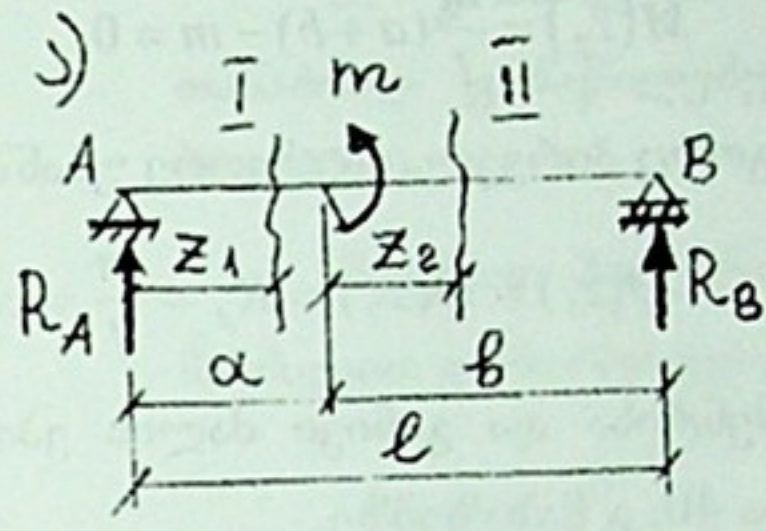 ა)
I m II
A B
z₁ z₂
R_A R_B
a b
l